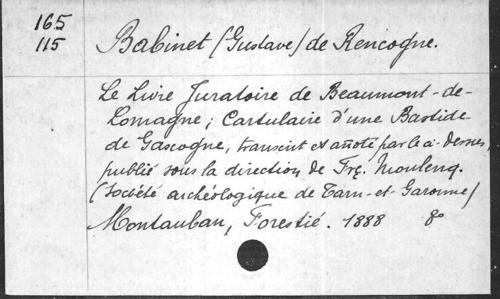 165
115
Babinet (Gustave) de Rencogne.
Le Livre Juratoire de Beaumont-de-
Lomagne; Cartulaire d'une Bastide
de Gascogne, transcrit et añoté par le ci-dessus,
publié sous la direction de Frç. Moulenq.
(Société archéologique de Tarn-et-Garonne)
Montauban, Forestié. 1888 8º